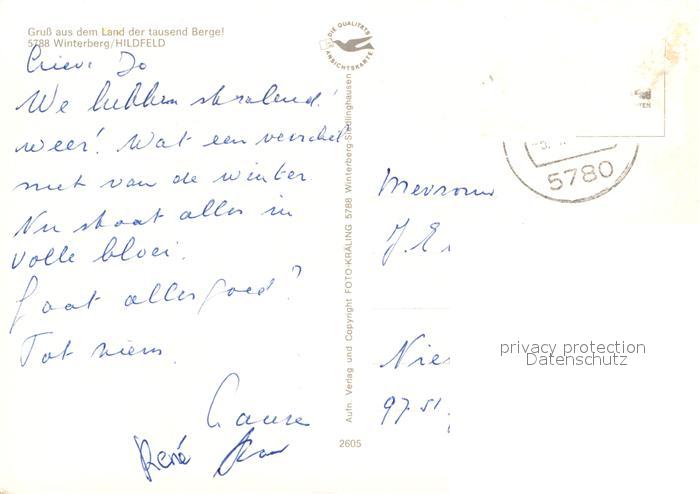 Gruß aus dem Land der tausend Berge!
5788 Winterberg/HILDFELD
DIE QUALITÄTS
ANSICHTSKARTE
Lieve Jo
We hebben stralend
weer! Wat een verschil
met van de winter.
Nu staat alles in
volle bloei.
Gaat alles goed?
Tot ziens
René
Aufn. Verlag und Copyright FOTO-KRALING 5788 Winterberg-Siedlinghausen
2605
5780
Mevrouw
J. E
Nie
97 51
privacy protection
Datenschutz